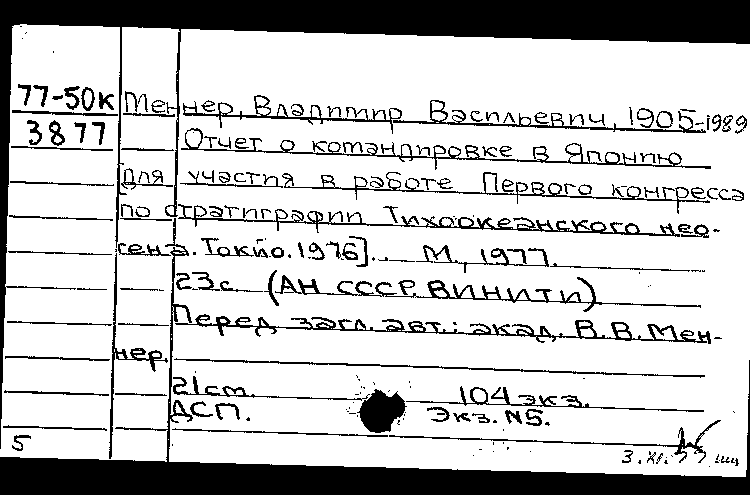 77-50К Меннер, Владимир Васильевич, 1905-1989
3877 Отчет о командировке в Японию
для участия в работе Первого конгресса
по стратиграфии Тихоокеанского нео-
гена. Токио. 1976]. М., 1977.
23с. (АН СССР. ВИНИТИ)
Перед загл. авт.: акад. В.В. Мен-
нер.
21cm. 104 экз.
ДСП. Экз. N5.
5 3.XI.